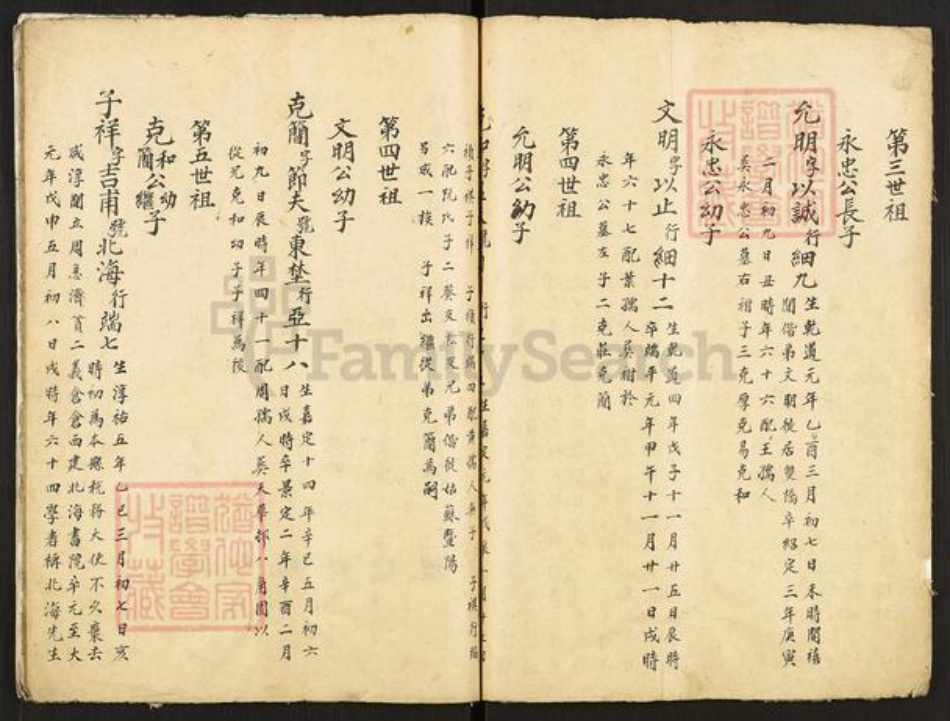 第三世祖
永忠公長子
允明字以誠行細九生乾道元年乙酉三月初七日未時開禧
間偕弟文明徙居雙橋卒紹定三年庚寅
二月初九日丑時年六十六配王孺人
葬永忠公墓右祔子三克厚克易克和
永忠公幼子
文明字以止行細十二生乾道四年戊子十一月廿五日辰時
卒端平元年甲午十一月廿一日戌時
年六十七配葉孺人葬祔於
永忠公墓左子二克莊克簡
第四世祖
允明公幼子
六配阮氏子二葵友乾友兄弟偕徙姑蘇璽陽
另成一族 子祥出繼從弟克簡為嗣
第四世祖
文明公幼子
克簡字節夫號東埜行亞十八生嘉定十四年辛巳五月初六
日戌時卒景定二年辛酉二月
初九日辰時年四十一配周孺人葬天華部八角園以
從兄克和幼子子祥為後
第五世祖
克和公幼子
簡繼
子祥字吉甫號北海行端七生淳祐五年乙巳三月初七日亥
時初為本縣稅務大使不久棄去
咸淳間立周急濟貧二義倉倉西建北海書院卒元至大
元年戊申五月初八日戌時年六十四學者稱北海先生
FamilySearch